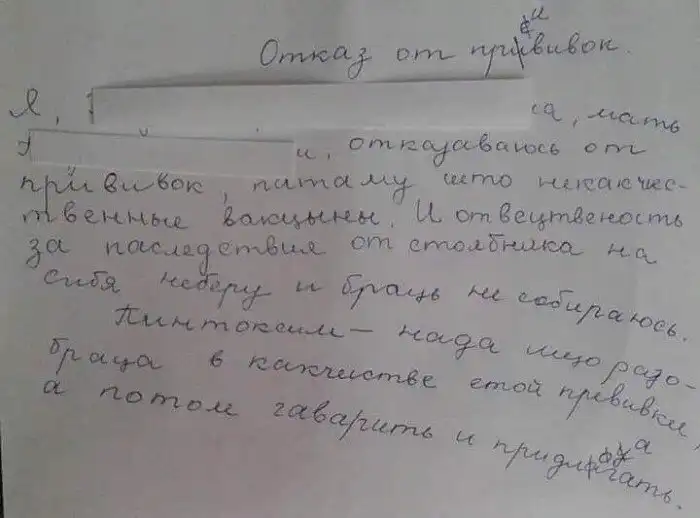 Отказ от прививок.
Я, га, мать
и, отказаваюсь от
прививок, патаму што некакчес-
твенные вакцыны. И отвецтвеность
за паследствия от столбника на
сибя небиру и браць не собираюсь.
Пинтоксим – нада ищо разо-
браца в какчистве етой превивки,
а потом гаварить и придлагать.